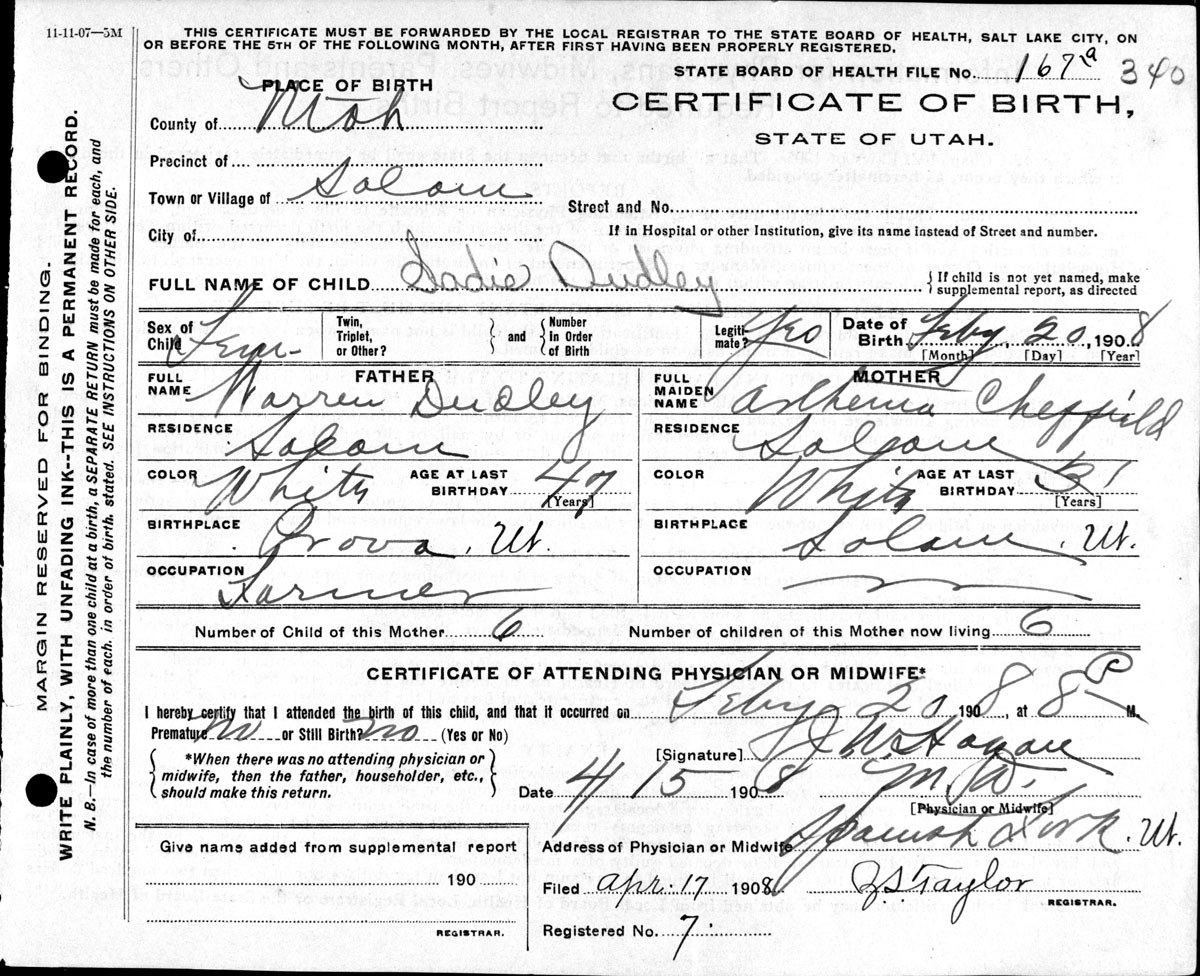 11-11-07—5M
THIS CERTIFICATE MUST BE FORWARDED BY THE LOCAL REGISTRAR TO THE STATE BOARD OF HEALTH, SALT LAKE CITY, ON
OR BEFORE THE 5TH OF THE FOLLOWING MONTH, AFTER FIRST HAVING BEEN PROPERLY REGISTERED.
STATE BOARD OF HEALTH FILE No. 167a 340
PLACE OF BIRTH
CERTIFICATE OF BIRTH,
STATE OF UTAH.
County of Utah
Precinct of
Town or Village of Salem
Street and No.
City of
If in Hospital or other Institution, give its name instead of Street and number.
FULL NAME OF CHILD Sadie Dudley { If child is not yet named, make supplemental report, as directed
Sex of Child Fem Twin, Triplet, or Other? } and { Number in Order of Birth Legiti-mate? Yes Date of Birth Feby 20, 1908
[Month] [Day] [Year]
FATHER
FULL NAME Warren Dudley
RESIDENCE Salem
COLOR White AGE AT LAST BIRTHDAY 47 [Years]
BIRTHPLACE Provo, Ut.
OCCUPATION Farmer
MOTHER
FULL MAIDEN NAME Cheffield
RESIDENCE Salem
COLOR White AGE AT LAST BIRTHDAY [Years]
BIRTHPLACE Salem, Ut.
OCCUPATION
Number of Child of this Mother 6 Number of children of this Mother now living 6
CERTIFICATE OF ATTENDING PHYSICIAN OR MIDWIFE*
I hereby certify that I attended the birth of this child, and that it occurred on Feby 20 1908, at 8 P M.
Premature No or Still Birth? No (Yes or No)
{ *When there was no attending physician or midwife, then the father, householder, etc., should make this return. }
[Signature] J W Hagan
Date 4 15 1908 M.D.
[Physician or Midwife]
Address of Physician or Midwife Spanish Fork. Ut.
Give name added from supplemental report
190
REGISTRAR.
Filed Apr. 17 1908 Taylor
REGISTRAR.
Registered No. 7.
MARGIN RESERVED FOR BINDING.
WRITE PLAINLY, WITH UNFADING INK--THIS IS A PERMANENT RECORD.
N. B.—In case of more than one child at a birth, a SEPARATE RETURN must be made for each, and
the number of each, in order of birth, stated. SEE INSTRUCTIONS ON OTHER SIDE.